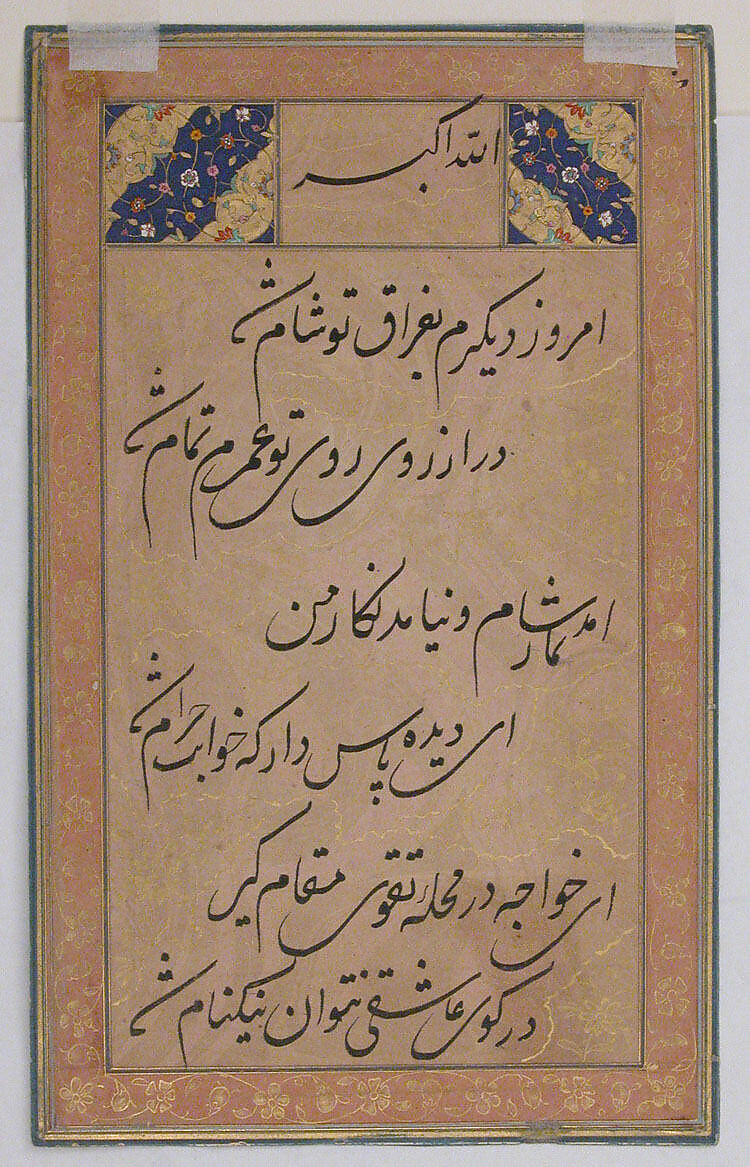 الله اکبر
امروز دیکرم بفراق تو شام شد
در ارزوی روی تو عمرم تمام شد
امد نماز شام و نیامد نکار من
ای دیده پاس دار که خوابت حرام شد
ای خواجه در محلهٔ تقوی مقام کیر
در کوی عاشقی نتوان نیکنام شد